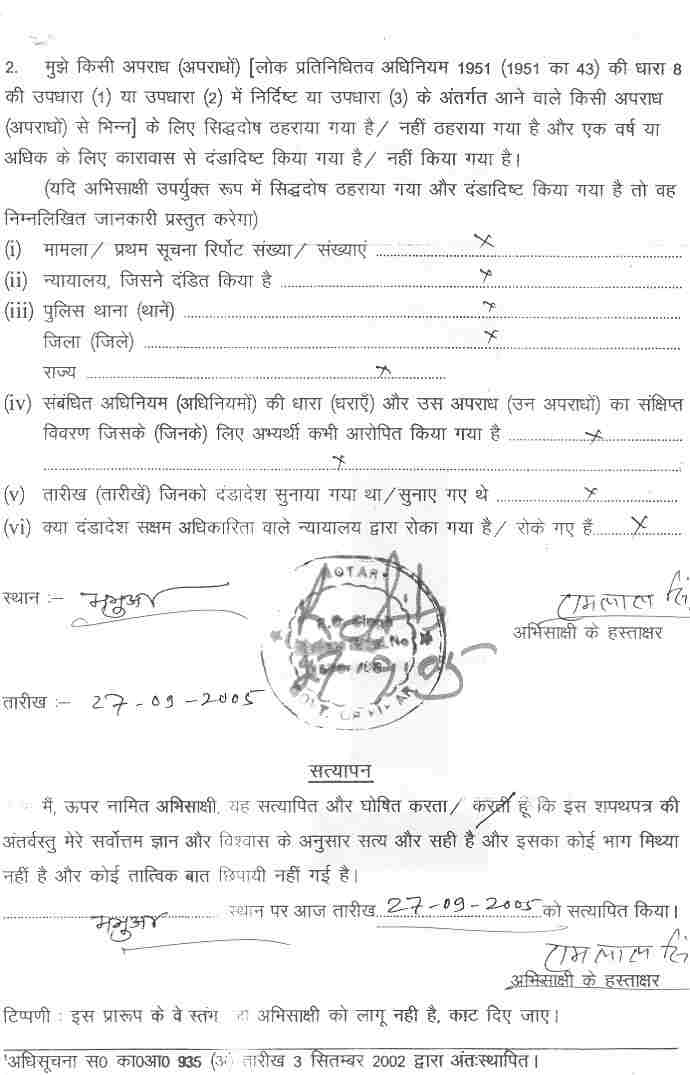 2. मुझे किसी अपराध (अपराधों) [लोक प्रतिनिधितव अधिनियम 1951 (1951 का 43) की धारा 8
की उपधारा (1) या उपधारा (2) में निर्दिष्ट या उपधारा (3) के अंतर्गत आने वाले किसी अपराध
(अपराधों) से भिन्न] के लिए सिद्वदोष ठहराया गया है/ नहीं ठहराया गया है और एक वर्ष या
अधिक के लिए कारावास से दंडादिष्ट किया गया है/ नहीं किया गया है।
(यदि अभिसाक्षी उपर्युक्त रूप में सिद्वदोष ठहराया गया और दंडादिष्ट किया गया है तो वह
निम्नलिखित जानकारी प्रस्तुत करेगा)
(i) मामला/ प्रथम सूचना रिर्पोट संख्या/ संख्याएं ........ x ........
(ii) न्यायालय, जिसने दंडित किया है ........ x ........
(iii) पुलिस थाना (थाने) ........ x ........
जिला (जिले) ........ x ........
राज्य ........ x ........
(iv) संबंधित अधिनियम (अधिनियमों) की धारा (धराएँ) और उस अपराध (उन अपराधों) का संक्षिप्त
विवरण जिसके (जिनके) लिए अभ्यर्थी कभी आरोपित किया गया है ........ x ........
........ x ........
(v) तारीख (तारीखें) जिनको दंडादेश सुनाया गया था/सुनाए गए थे ........ x ........
(vi) क्या दंडादेश सक्षम अधिकारिता वाले न्यायालय द्वारा रोका गया है/ रोके गए हैं ........ x ........
NOTAR
स्थान :– भभुआ
रामलाल सिं
अभिसाक्षी के हस्ताक्षर
27.9.05
GOVT. OF BIHAR
तारीख :– 27-09-2005
सत्यापन
मैं, ऊपर नामित अभिसाक्षी, यह सत्यापित और घोषित करता/ करती हूँ कि इस शपथपत्र की
अंतर्वस्तु मेरे सर्वोत्तम ज्ञान और विश्वास के अनुसार सत्य और सही है और इसका कोई भाग मिथ्या
नहीं है और कोई तात्विक बात छिपायी नहीं गई है।
भभुआ ........ स्थान पर आज तारीख 27-09-2005 को सत्यापित किया।
रामलाल सिं
अभिसाक्षी के हस्ताक्षर
टिप्पणी : इस प्रारूप के वे स्तंभ अभिसाक्षी को लागू नही है, काट दिए जाए।
¹अधिसूचना स0 का0आ0 935 (अ) तारीख 3 सितम्बर 2002 द्वारा अंतःस्थापित।